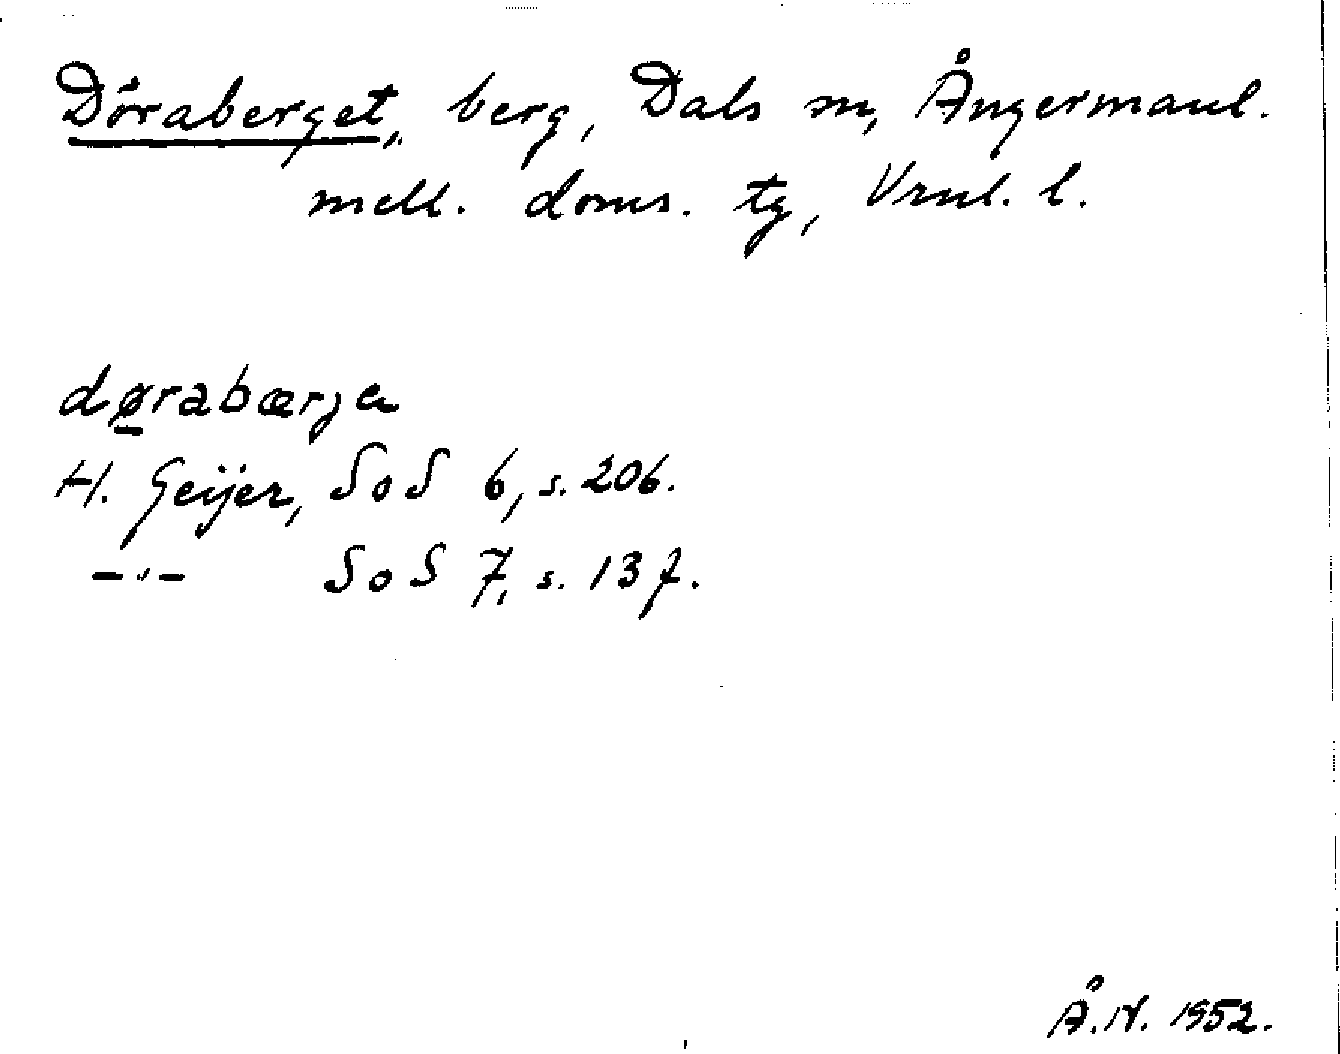 Döraberget, berg, Dals sn, Ångermanl.
mell. doms. tg, Vrnl. l.
dørabærjə
H. Geijer, SoS 6, s. 206.
–"– SoS 7, s. 137.
Å.N. 1952.